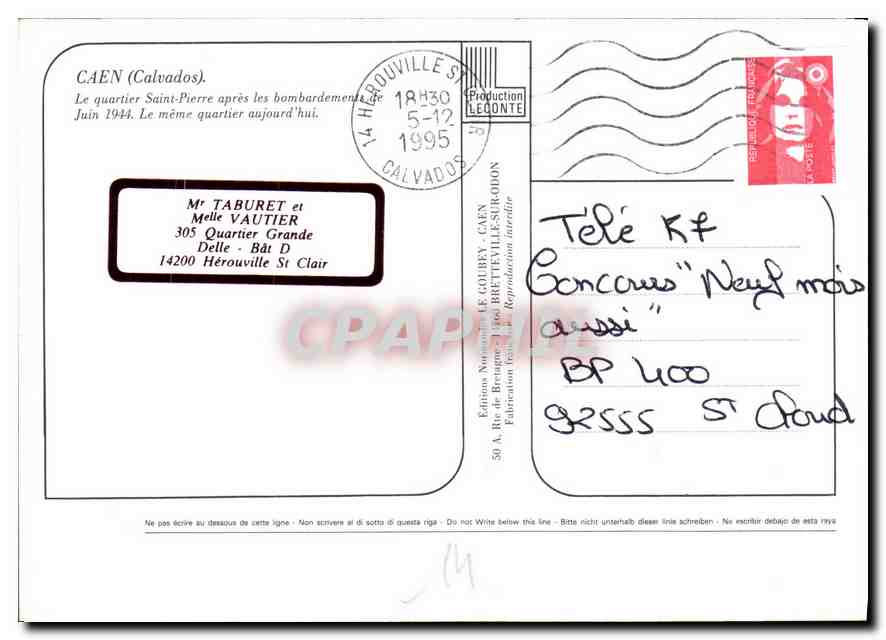 CAEN (Calvados).
Le quartier Saint-Pierre après les bombardements de
Juin 1944. Le même quartier aujourd'hui.
14 HEROUVILLE ST
18H30
5-12
1995
CALVADOS
Production
LECONTE
RÉPUBLIQUE FRANÇAISE
LA POSTE
Mr TABURET et
Melle VAUTIER
305 Quartier Grande
Delle - Bât D
14200 Hérouville St Clair
Éditions Normandes LE GOUBEY - CAEN
50 A, Rte de Bretagne - 14760 BRETTEVILLE-SUR-ODON
Fabrication française - Reproduction interdite
CPAPHIL
Télé K7
Concours "Neuf mois
aussi"
BP 400
92555 ST Cloud
Ne pas écrire au dessous de cette ligne - Non scrivere al di sotto di questa riga - Do not Write below this line - Bitte nicht unterhalb dieser linie schreiben - No escribir debajo de esta raya
14